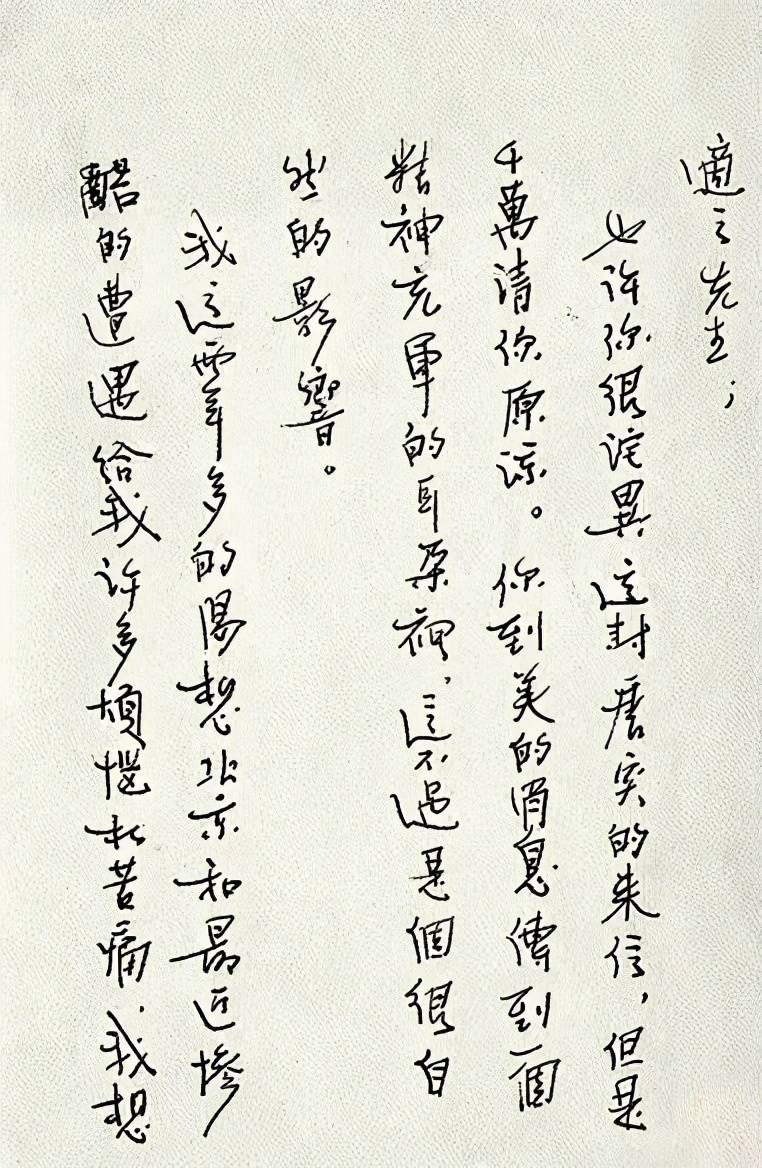 適之先生：
也許你很詫異這封唐突的來信，但是
千萬請你原諒。你到美的消息傳到一個
精神充軍的耳朵裡，這不過是個很自
然的影響。
我這兩年多的渴想北京和最近慘
酷的遭遇給我許多煩惱和苦痛，我想